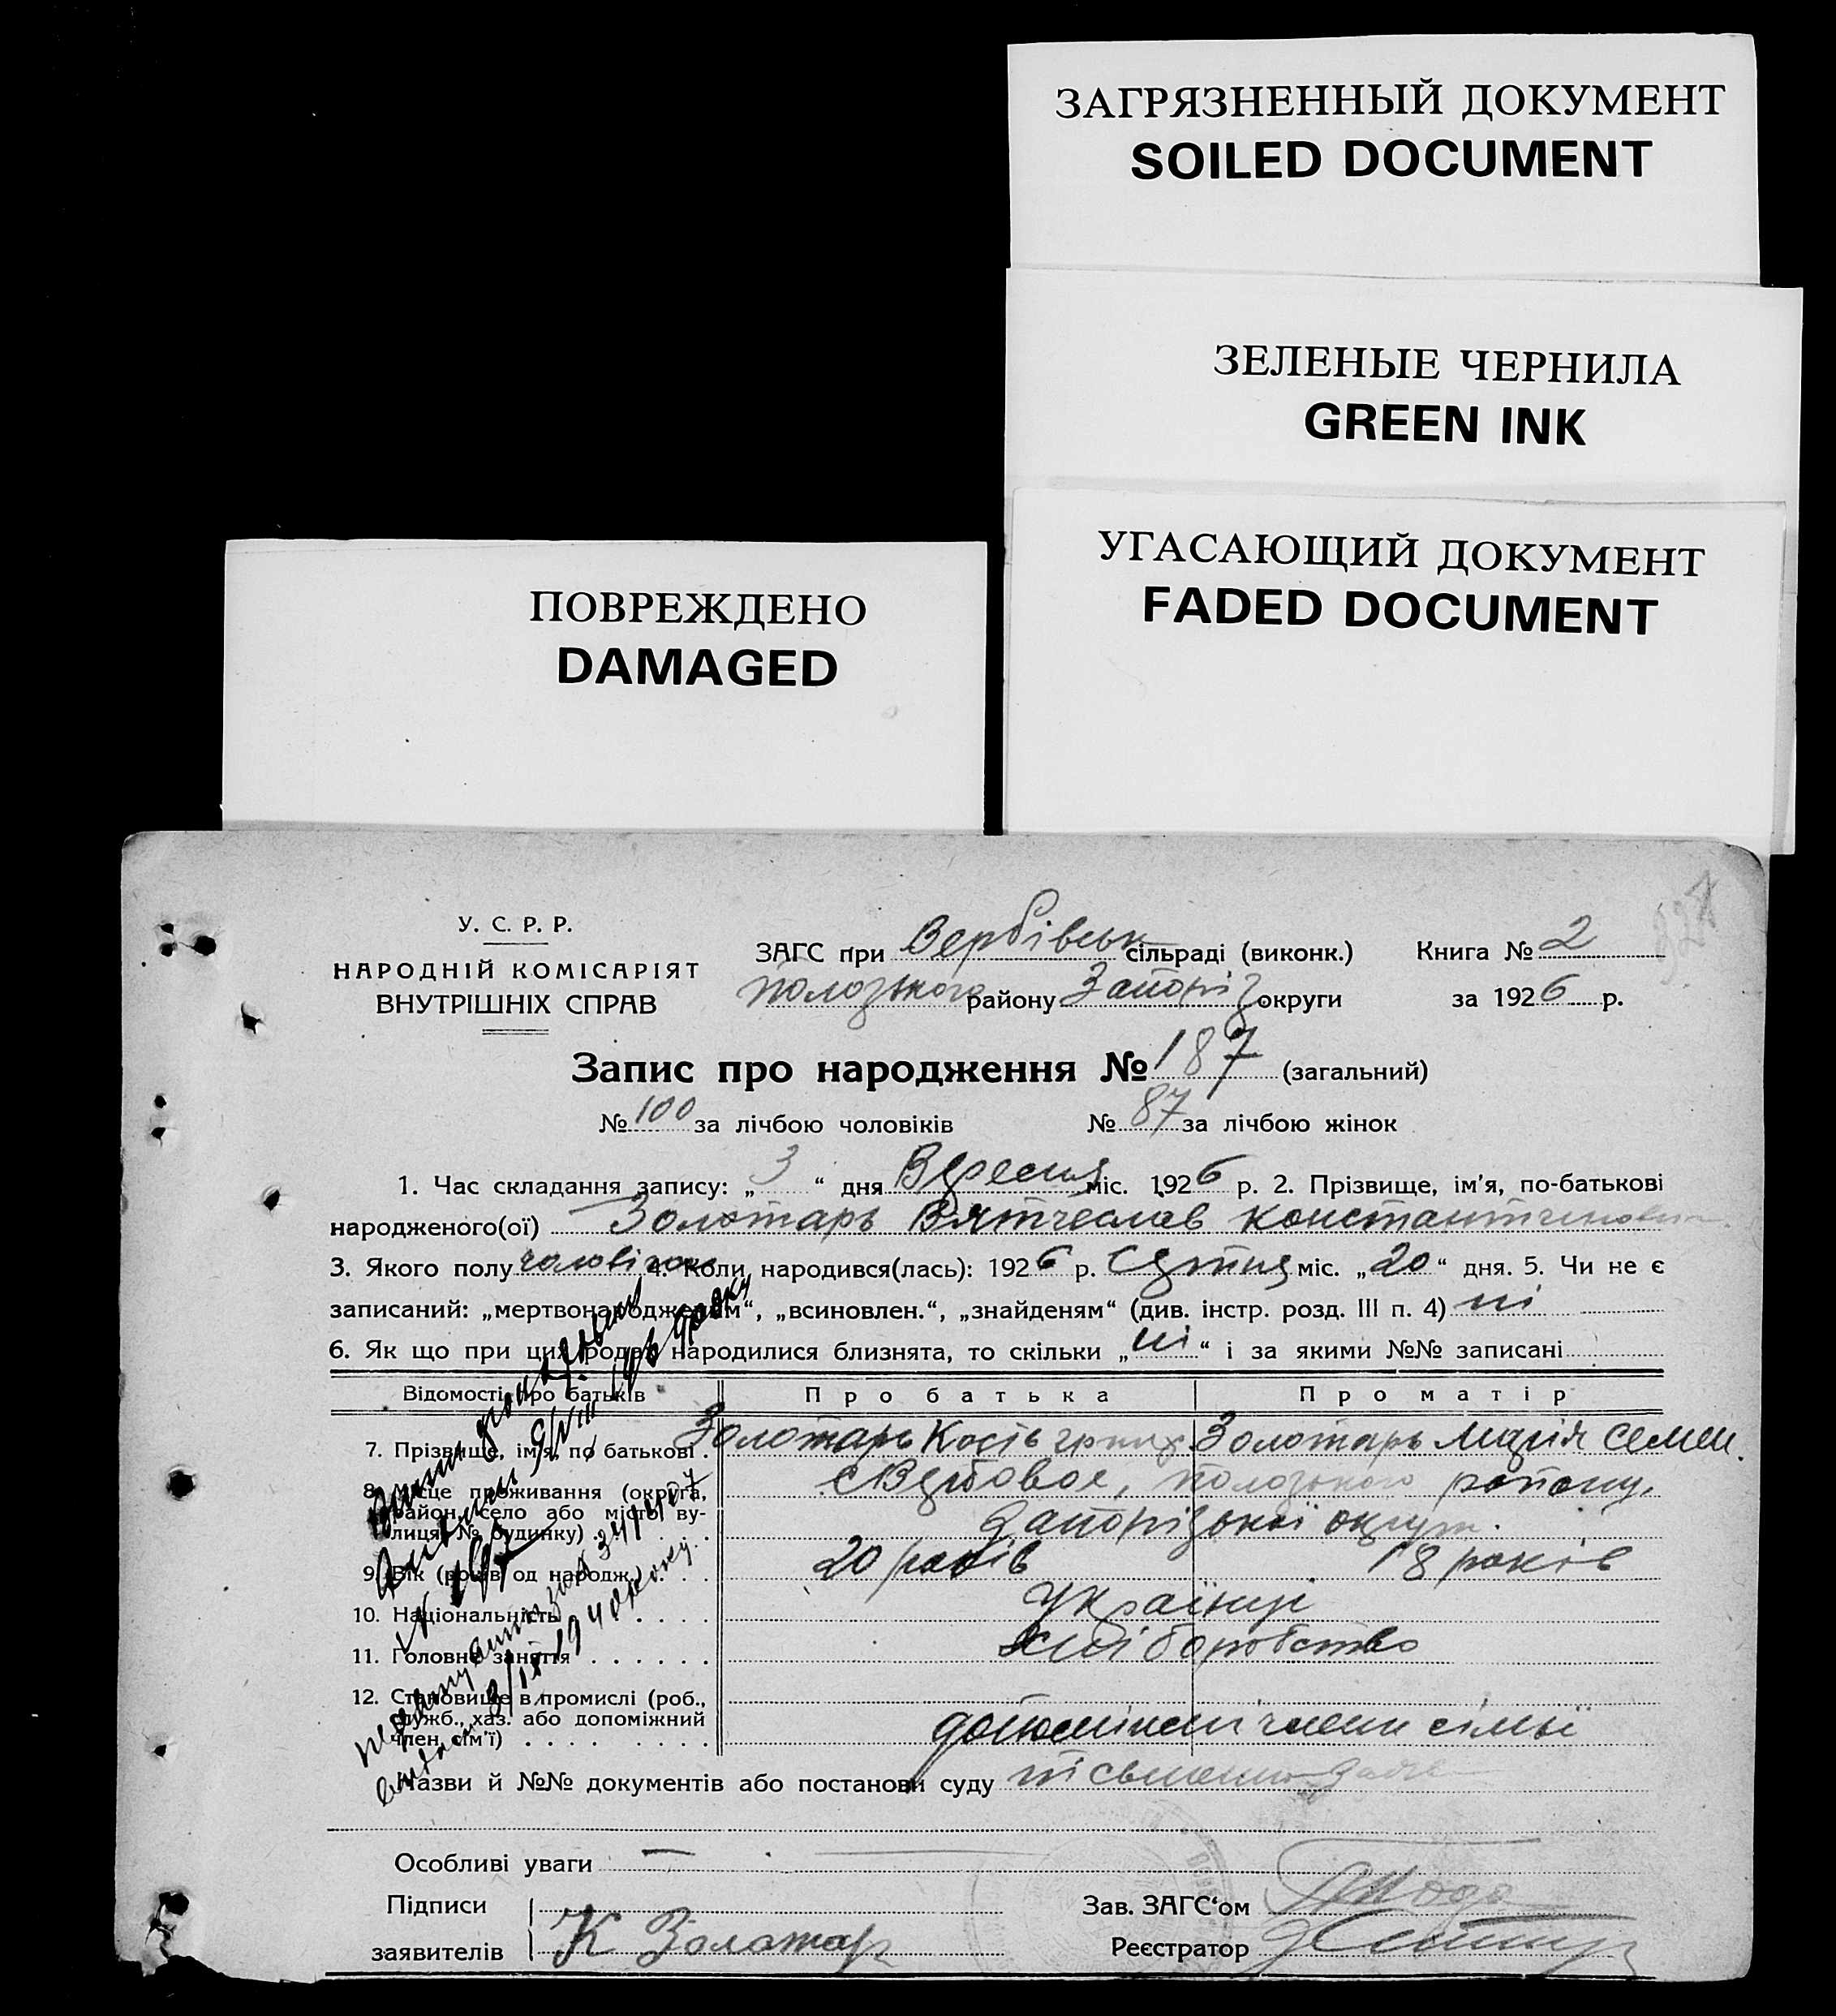 ЗАГРЯЗНЕННЫЙ ДОКУМЕНТ
SOILED DOCUMENT
ЗЕЛЕНЫЕ ЧЕРНИЛА
GREEN INK
УГАСАЮЩИЙ ДОКУМЕНТ
FADED DOCUMENT
ПОВРЕЖДЕНО
DAMAGED
У. С. Р. Р.
НАРОДНІЙ КОМІСАРІЯТ
ВНУТРІШНІХ СПРАВ
ЗАГС при Вербівськ сільраді (виконк.) Книга № 2
Пологького району Запоріз округи за 1926 р.
Запис про народження № 187 (загальний)
№ 100 за лічбою чоловіків № 87 за лічбою жінок
1. Час складання запису: „ 3 “ дня Вересня міс. 1926 р. 2. Прізвище, ім’я, по-батькові
народженого(ої) Золотарь Вятчеслав
3. Якого полу 4. Коли народився(лась): 1926 р. Серпня міс. „20“ дня. 5. Чи не є
записаний: „мертвонародженим“, „всиновлен.“, „знайденям“ (див. інстр. розд. III п. 4) ні
6. Як що при цих родах народилися близнята, то скільки „ні“ і за якими №№ записані
Відомості про батьків Про батька Про матір
7. Прізвище, ім’я, по батькові Золотарь Кость Золотарь Марія Семен.
8. Місце проживання (округа, район, село або місто, вулиця, № будинку) с Вербовое, району,
Запорізької округи.
9. Вік (років од народж.) 20 років 18 років
10. Національність Українці
11. Головне заняття хліборобство
12. Становище в промислі (роб., служб., хаз. або допоміжний член сім’ї) члени сімьї
Назви й №№ документів або постанови суду
Особливі уваги —
Підписи
заявителів К Золотар
Зав. ЗАГС‘ом
Реєстратор